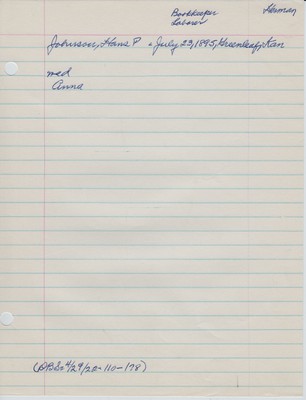 Bookkeeper
Laborer
Herman
Johnson, Hans P - July 23, 1895, Greenleaf, Kan
med
Anna
4/29/20-110-178)